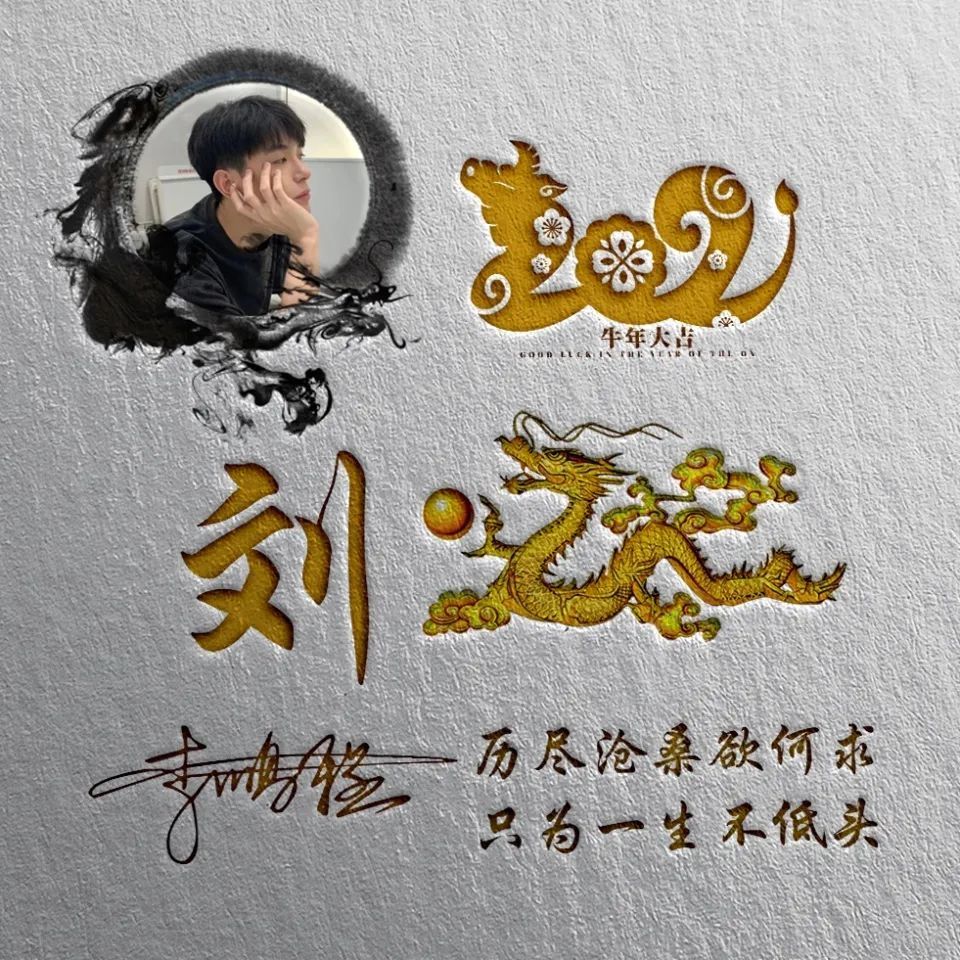 2021
牛年大吉
GOOD LUCK IN THE YEAR OF THE OX
刘
历尽沧桑欲何求
只为一生不低头